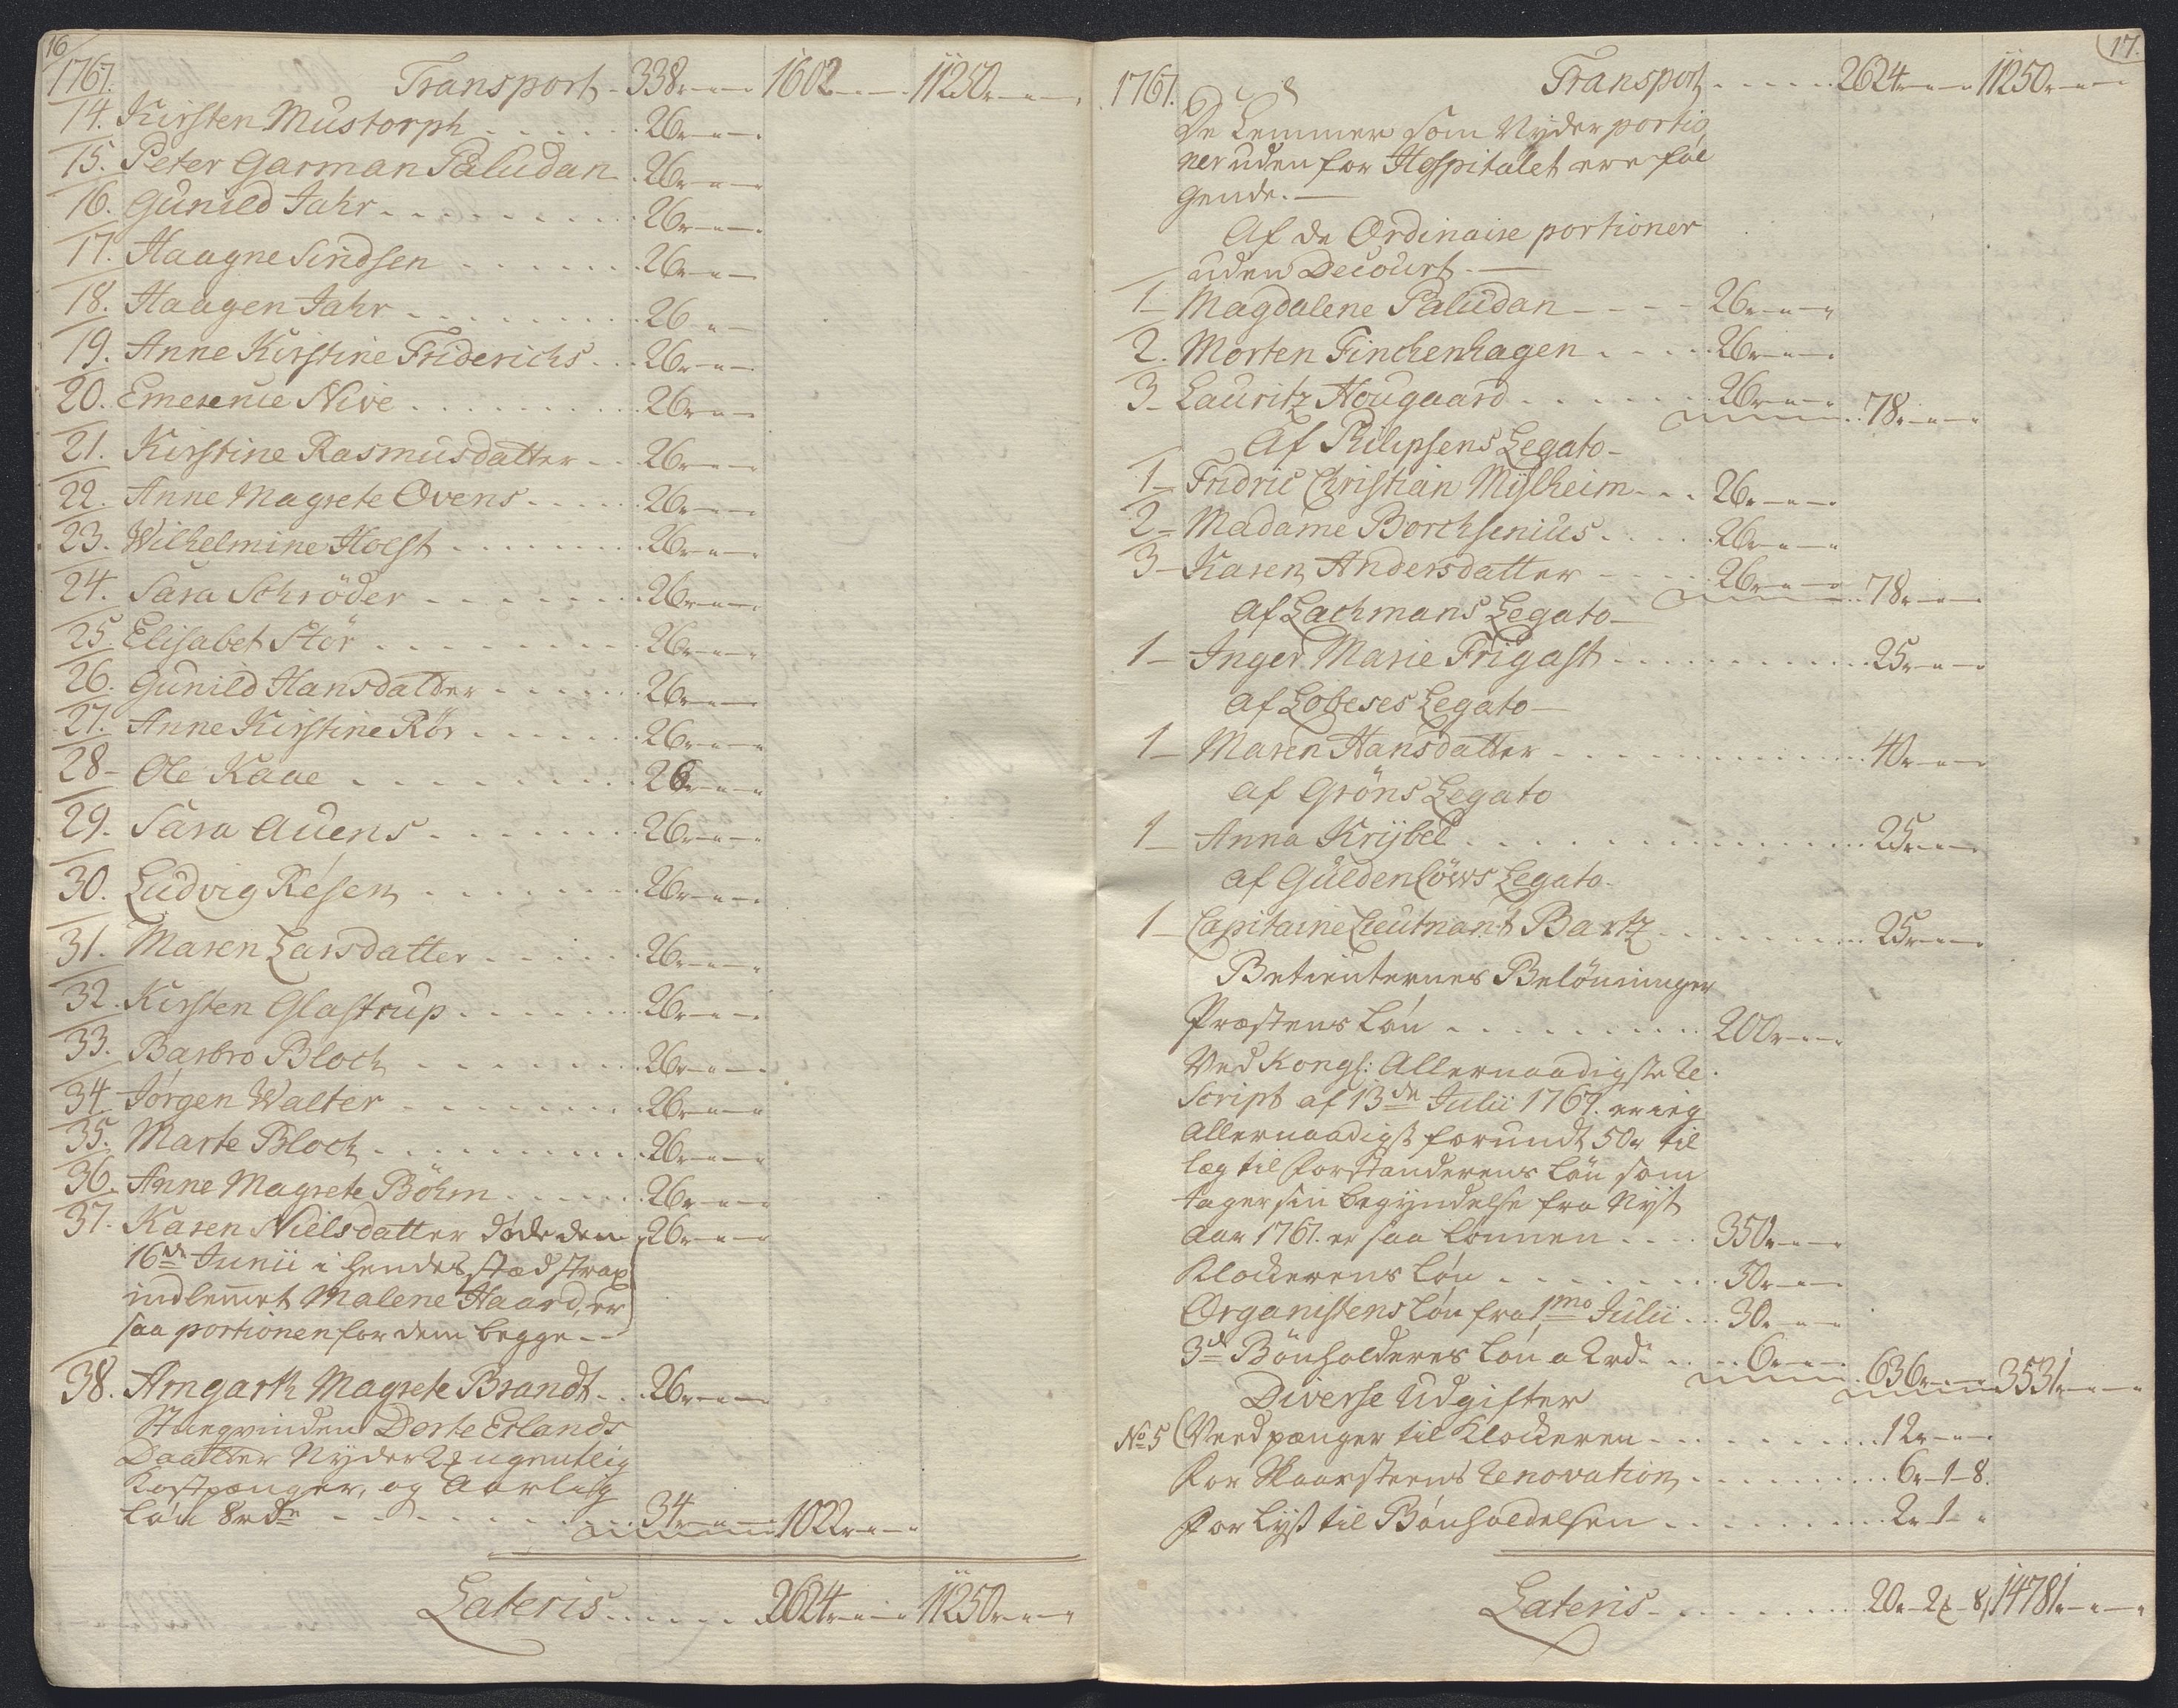 16
1767. Transport - 338 r - " - " 1602 - " - 11250 r - " - "
14. Kirsten Mustorph . . . . . 26 r - " - "
15. Peter Garman Paludan 26 r - " - "
16. Gunild Jahr . . . . . 26 r - " - "
17. Haagne Sindsen . . . . . 26 r - " - "
18. Haagen Jahr . . . . . 26 - " -
19. Anne Kirstine Friderichs . . 26 r - " - "
20. Emerence Nive . . . . . 26 r - " - "
21. Kirstine Rasmusdatter . . 26 r - " - "
22. Anne Magrete Ovens . . . . 26 r - " - "
23. Wilhelmine Holst . . . . . 26 r - " - "
24. Sara Schröder . . . . . 26 r - " - "
25. Elisabet Stör . . . . . 26 r - " - "
26. Gunild Hansdatter . . . . . 26 r - " - "
27. Anne Kirstine Rör . . . . . 26 r - " - "
28 - Ole Kaae . . . . . 26 r - " - "
29. Sara Auens . . . . . 26 r - " - "
30. Ludvig Resen . . . . . 26 r - " - "
31. Maren Larsdatter . . . . . 26 r - " - "
32. Kirsten Glastrup . . . . . 26 r - " - "
33. Barbro Bloch . . . . . 26 r - " - "
34 Jørgen Walter . . . . . 26 r - " - "
35. Marte Bloch . . . . . 26 r - " - "
36. Anne Magrete Böhm . . . . 26 r - " - "
37. Karen Nielsdatter døde den 26 r - " - "
16de Junii i hendes stæd strax
indlemet Malene Haard, er
saa portionen for dem begge - -
38. Armgarth Magrete Brandt . . 26 r - " - "
Stueqvinden Dorte Erlands
Daatter Nyder 2 ugentlig
Kostpenger, og Aarlig
Løn 8 rdr . . . . . 34 r - " - " 1022 r - " - "
Lateris . . . . . 2624 r - " - " 11250 r - " - "
17.
1767. Transport . . . . . 2624 r - " - " 11250 r - " - "
De Lemmer som Nyder portio
ner uden for Hospitalet ere føl
gende. -
Af de Ordinaire portioner
uden Decourt. -
1 - Magdalene Paludan - - - - 26 r - " - "
2. Morten Finchenhagen . . . . 26 r - " - "
3 - Lauritz Hougaard . . . . . 26 r - " - " 78 r - " - "
Af Philipsens Legato -
1 - Fridric Christian Mylheim . . . 26 r - " - "
2 - Madame Borchsenius . . . . 26 r - " - "
3 - Karen Andersdatter . . . . 26 r - " - " 78 r - " - "
Af Lachmans Legato -
1 - Inger Marie Frigast . . . . . 25 r - " - "
Af Lobeses Legato -
1 - Maren Hansdatter . . . . . 40 r - " - "
Af Gröns Legato
1 - Anna Krijbel . . . . . 25 r - " - "
Af Guldenlöws Legato -
1 - Capitaine Lieutnant Bartz . . . . . 25 r - " - "
Betienternes Belönninger
Præstens Løn . . . . . 200 r - " - "
Ved Kongl: Allernaadigste Re
script af 13de Julii 1767. er ieg
Allernaadigst forundt 50 r til
læg til Forstanderens Løn som
tager sin begyndelse fra Nyt
Aar 1767. er saa Lønnen . . . . 350 r - " - "
Klockerens Løn . . . . . 50 r - " - "
Organistens Løn fra 1mo Julii . . 30 r - " - "
3de Bönholderes Løn a 2 rdr . . . 6 r - " - " 636 r - " - " 3531 r - " - "
Diverse Udgifter
No 5 Veedpenger til Klockeren . . . . . 12 r - " - "
For Skaarsteens Renovation . . . . . 6 r - 1 - 8.
For Lyst til Bönholdelsen . . . . . 2 r - 1 - "
Lateris . . . . . 20 r - 2 - 8, 14781 r - " - "